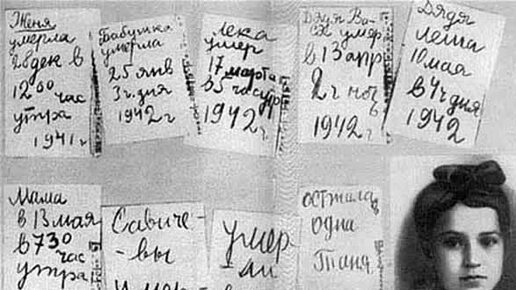 Женя
умерла
28 дек в
12.00 час
утра
1941 г
Бабушка
умерла
25 янв
3 ч. дня
1942 г
Лека
умер
17 марта
в 5 часутр
1942 г.
Дядя Ва-
ся умер
в 13 апр
2 ч ноч
1942 г
Дядя
Леша
10 мая
в 4 ч дня
1942
Мама
в 13 мая
в 7 30
час
утра
Савиче-
-вы
Умер-
-ли
осталась
одна
Таня